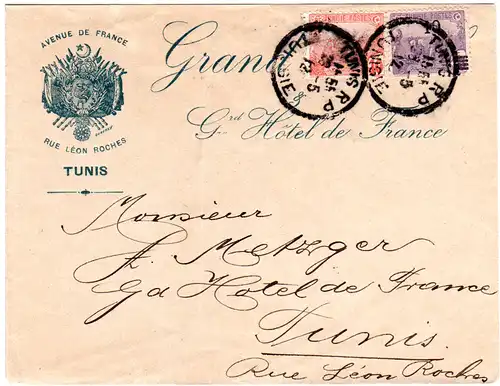 AVENUE DE FRANCE
RUE LÉON ROCHES
TUNIS
Grand
Grd Hôtel de France
POSTES
TUNIS R P
TUNISIE
TUNIS R P
TUNISIE
Monsieur
F. Metzger
Gd Hôtel de France
Tunis
Rue Léon Roches